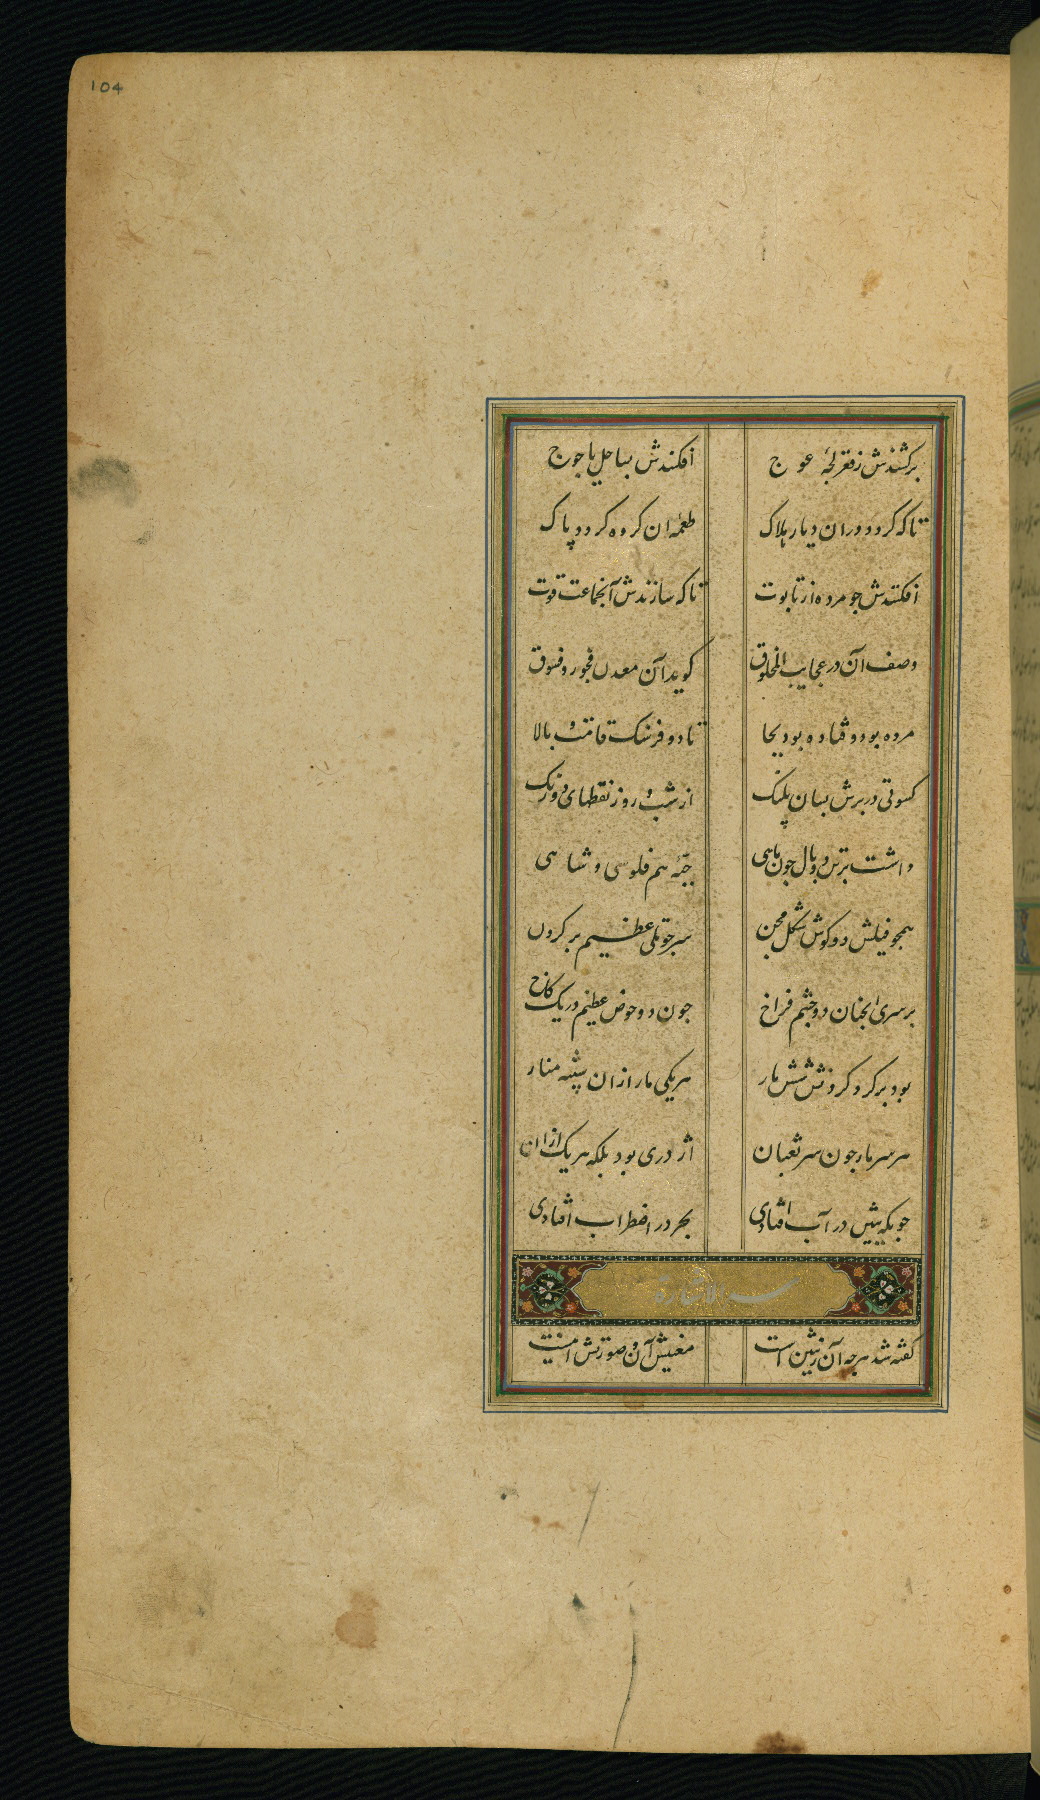 104
برکشندش زقعر لجه عوج افکندش بساحل یاجوج
تاکه کردد دران دیار هلاک طعمه ان کروه کردد پاک
افکندش جو مرده از تابوت تاکه سازندش آنجماعت قوت
وصف آن در عجایب المخلوق کوید آن معدن فجور و فسوق
مرده بود و فتاده بود بجا تا دو فرسنک قامت و بالا
کسوتی در برش بسان پلنک از شب و روز نقطهای دو رنک
داشت بر تن دو بال جون ماهی جثه هم فلوسی و شاهی
همجو فیلش دو کوش شکل مجن سر جو تلی عظیم بر کردن
بر سری انجنان دو جشم فراخ جون دو حوض عظیم در یک کاخ
بود بر کرد کردنش شش مار هر یکی مار ازان پشته منار
هر سر مار جون سر ثعبان اژدری بود بلکه هر یک ازان
جونکه پیش در آب افتادی بحر در اضطراب افتادی
الاشارة
کفته شد هرجه آن زپیش است معنیش آن و صورتش اینست